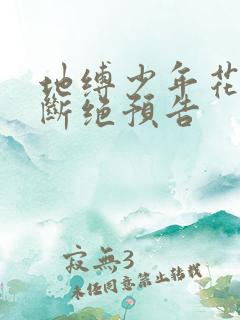 地缚少年花
斷绝預告
寂無3
未经同意禁止转载